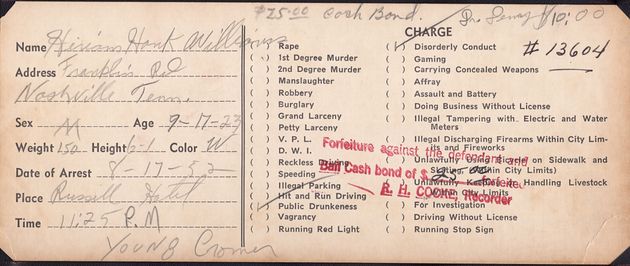 $25.00 Cash Bond. $10:00
CHARGE
# 13604
Name Hiriam Hank Williams
Address Franklin Rd
Nashville Tenn.
Sex M Age 9-17-23
Weight 150 Height 6-1 Color W
Date of Arrest 8-17-52
Place Russell Hotel
Time 11:25 P.M
Young Cromer
( ) Rape
( ) 1st Degree Murder
( ) 2nd Degree Murder
( ) Manslaughter
( ) Robbery
( ) Burglary
( ) Grand Larceny
( ) Petty Larceny
( ) V. P. L.
( ) D. W. I.
( ) Reckless Driving
( ) Speeding
( ) Illegal Parking
( ) Hit and Run Driving
( ) Public Drunkeness
( ) Vagrancy
( ) Running Red Light
( ) Disorderly Conduct
( ) Gaming
( ) Carrying Concealed Weapons
( ) Affray
( ) Assault and Battery
( ) Doing Business Without License
( ) Illegal Tampering with Electric and Water
Meters
( ) Illegal Discharging Firearms Within City Lim-
its and Fireworks
( ) Unlawfully Using Bicycle on Sidewalk and
Skating, (Within City Limits)
( ) Unlawfully Keeping or Handling Livestock
Within City Limits
( ) For Investigation
( ) Driving Without License
( ) Running Stop Sign
Forfeiture against the defendant and
Bail Cash bond of $ 25.00
E. H. COOKE, Recorder